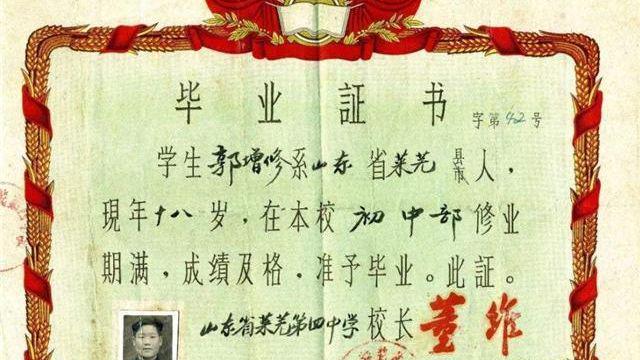 毕业証书
字第42号
学生郭增修系山东省莱芜县市人，
現年十八岁，在本校初中部修业
期满，成绩及格，准予毕业。此証。
山东省莱芜第四中学校长董维